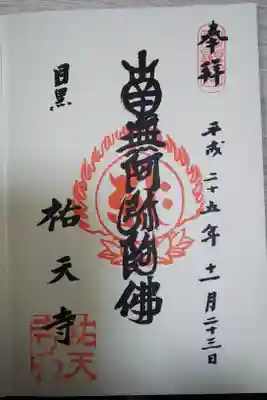 奉拜
平成二十五年十一月二十三日
南無阿弥陀佛
目黒
祐天寺